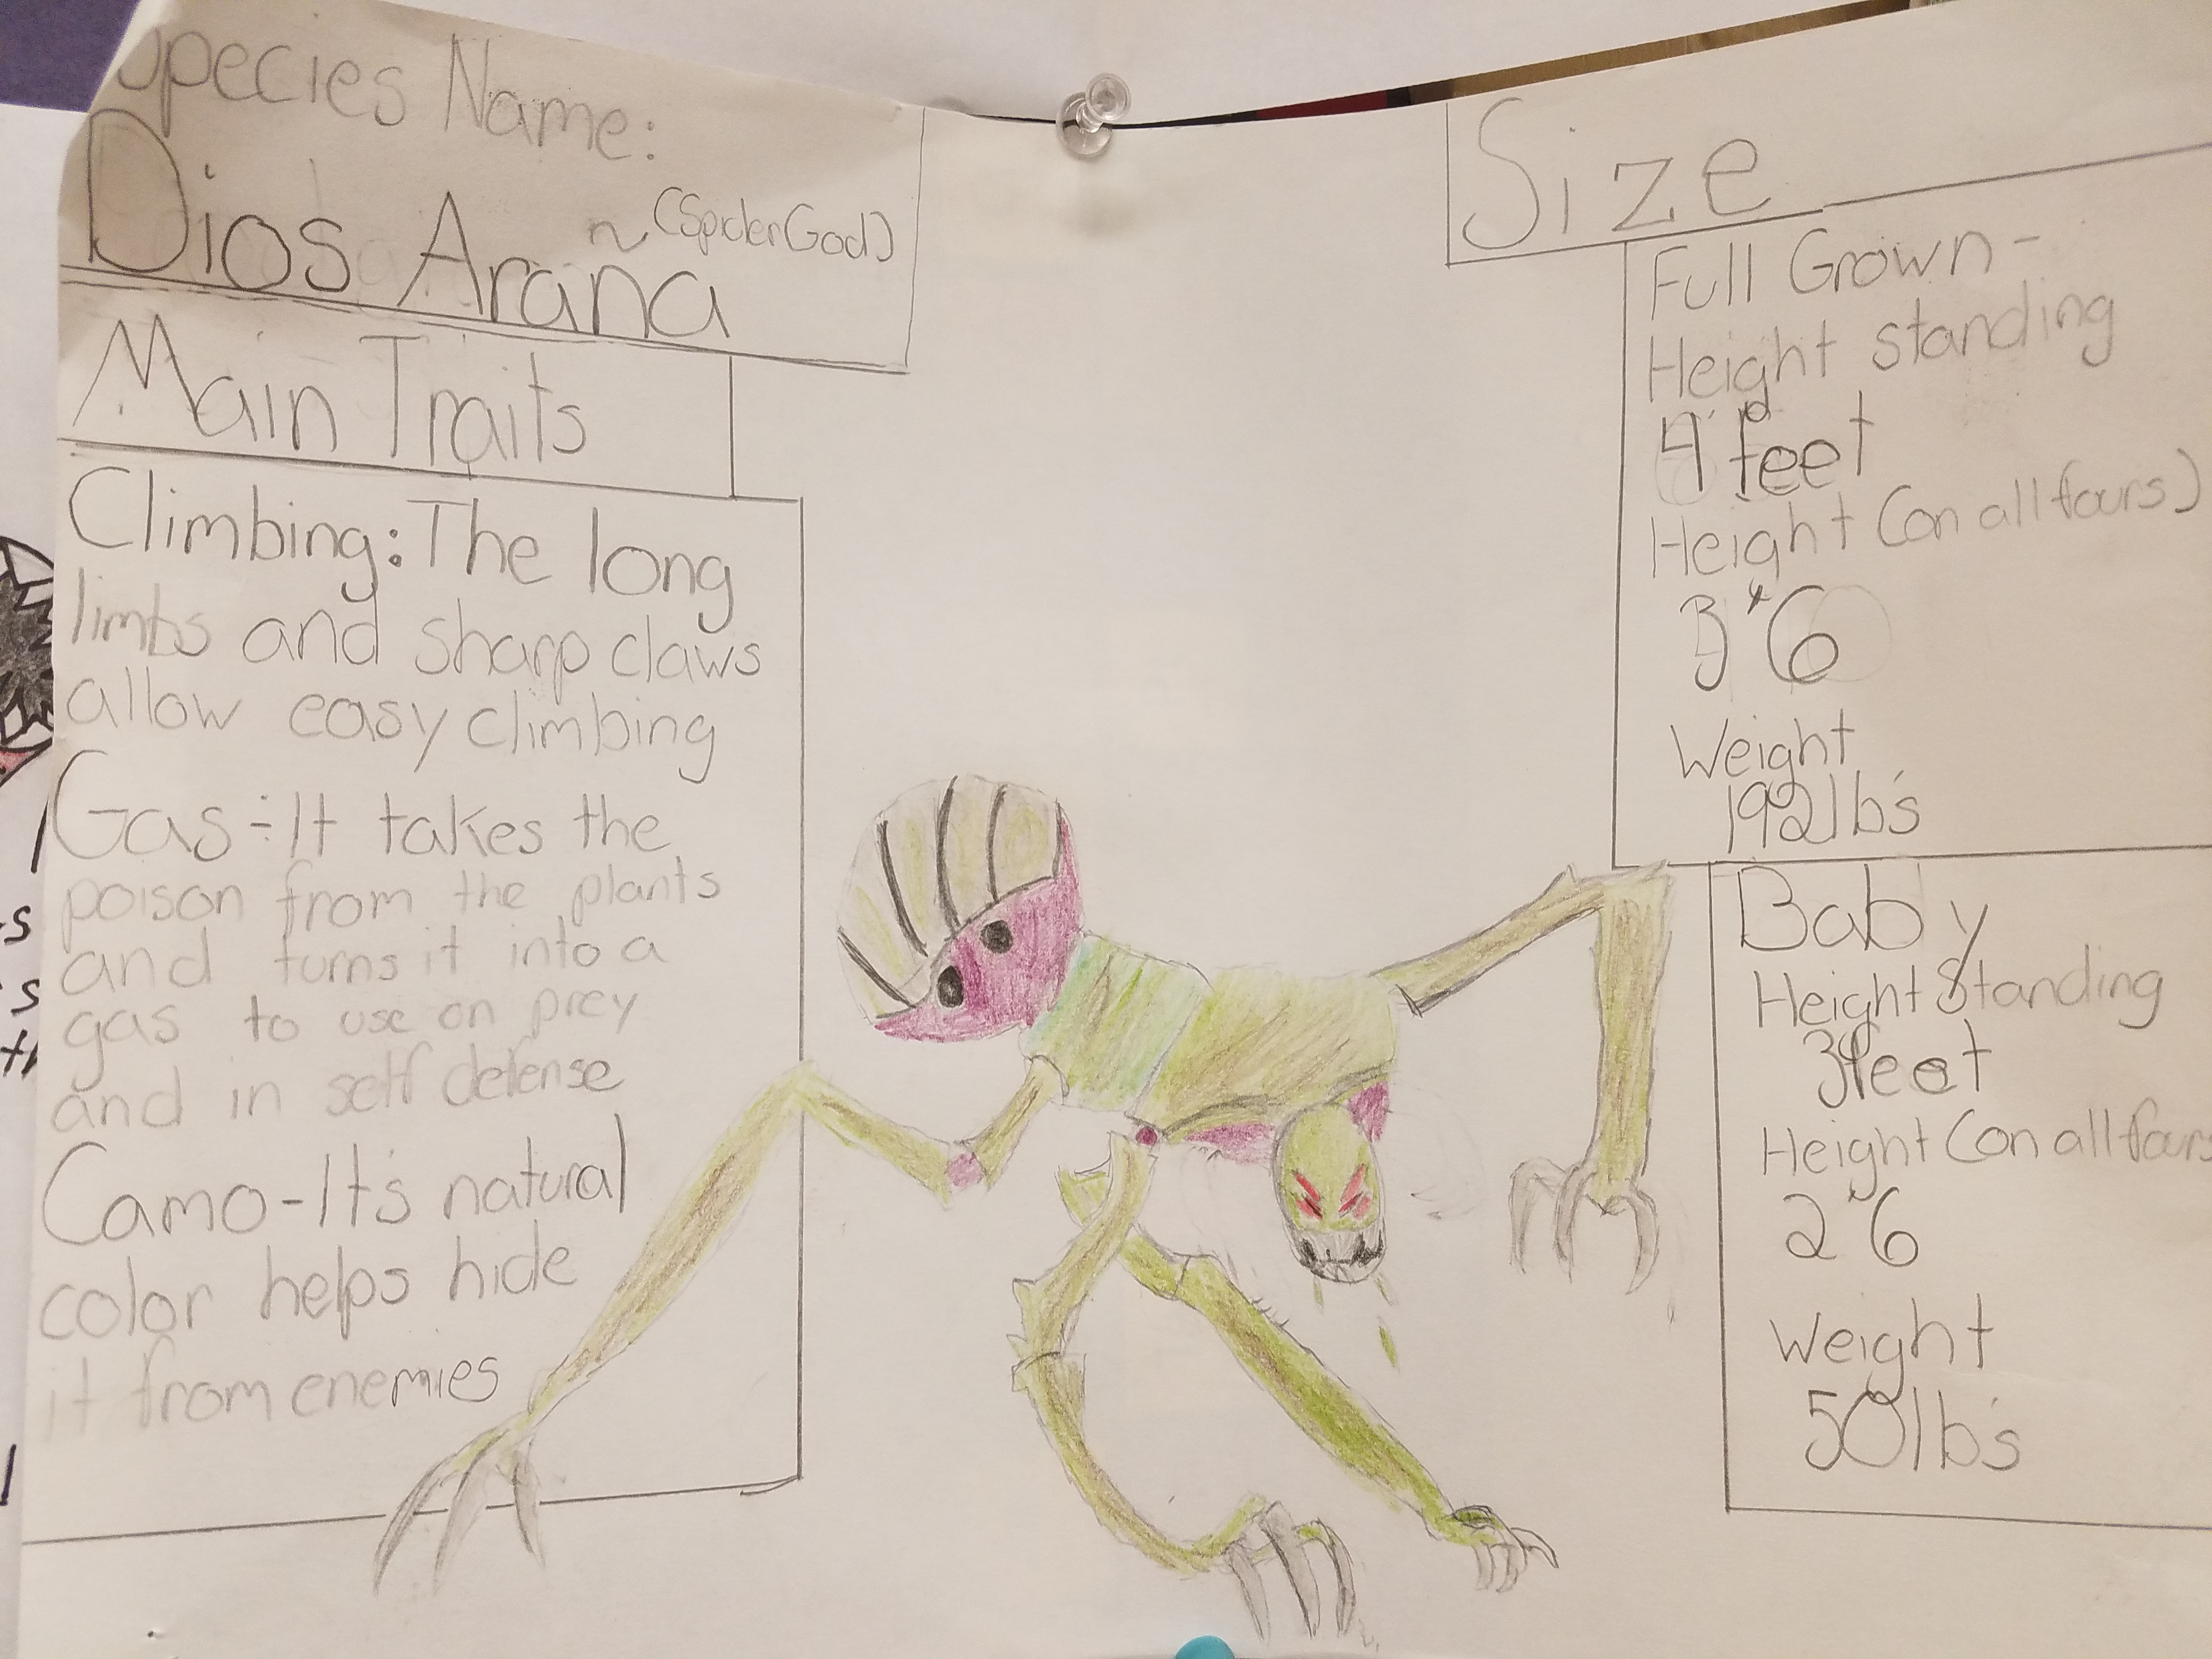 Species Name:
Dios Arana ~ (Spider God)
Main Traits
Climbing: The long
limbs and sharp claws
allow easy climbing
Gas-It takes the
poison from the plants
and turns it into a
gas to use on prey
and in self defense
Camo-It's natural
color helps hide
it from enemies
Size
Full Grown-
Height standing
4 feet
Height (on all fours)
3"6
Weight
192lb's
Baby
Height Standing
3feet
Height (on all fours
2"6
Weight
50lb's